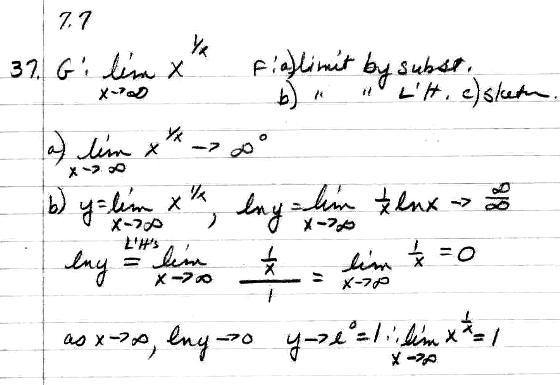 7.7
37. G: lim x→∞ x^(1/x) F: a) limit by subst.
b) " " L'H. c) sketch.
a) lim x→∞ x^(1/x) → ∞^0
b) y = lim x→∞ x^(1/x), ln y = lim x→∞ 1/x ln x → ∞/∞
ln y =(L'H's) lim x→∞ (1/x)/1 = lim x→∞ 1/x = 0
as x→∞, ln y → 0 y → e^0 = 1 ∴ lim x→∞ x^(1/x) = 1